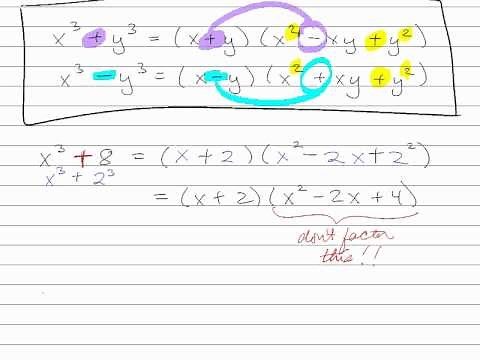 x³ + y³ = (x+y) (x² - xy + y²)
x³ - y³ = (x-y) (x² + xy + y²)
x³ + 8 = (x+2) (x² - 2x + 2²)
x³ + 2³
= (x+2) (x² - 2x + 4)
don't factor
this!!